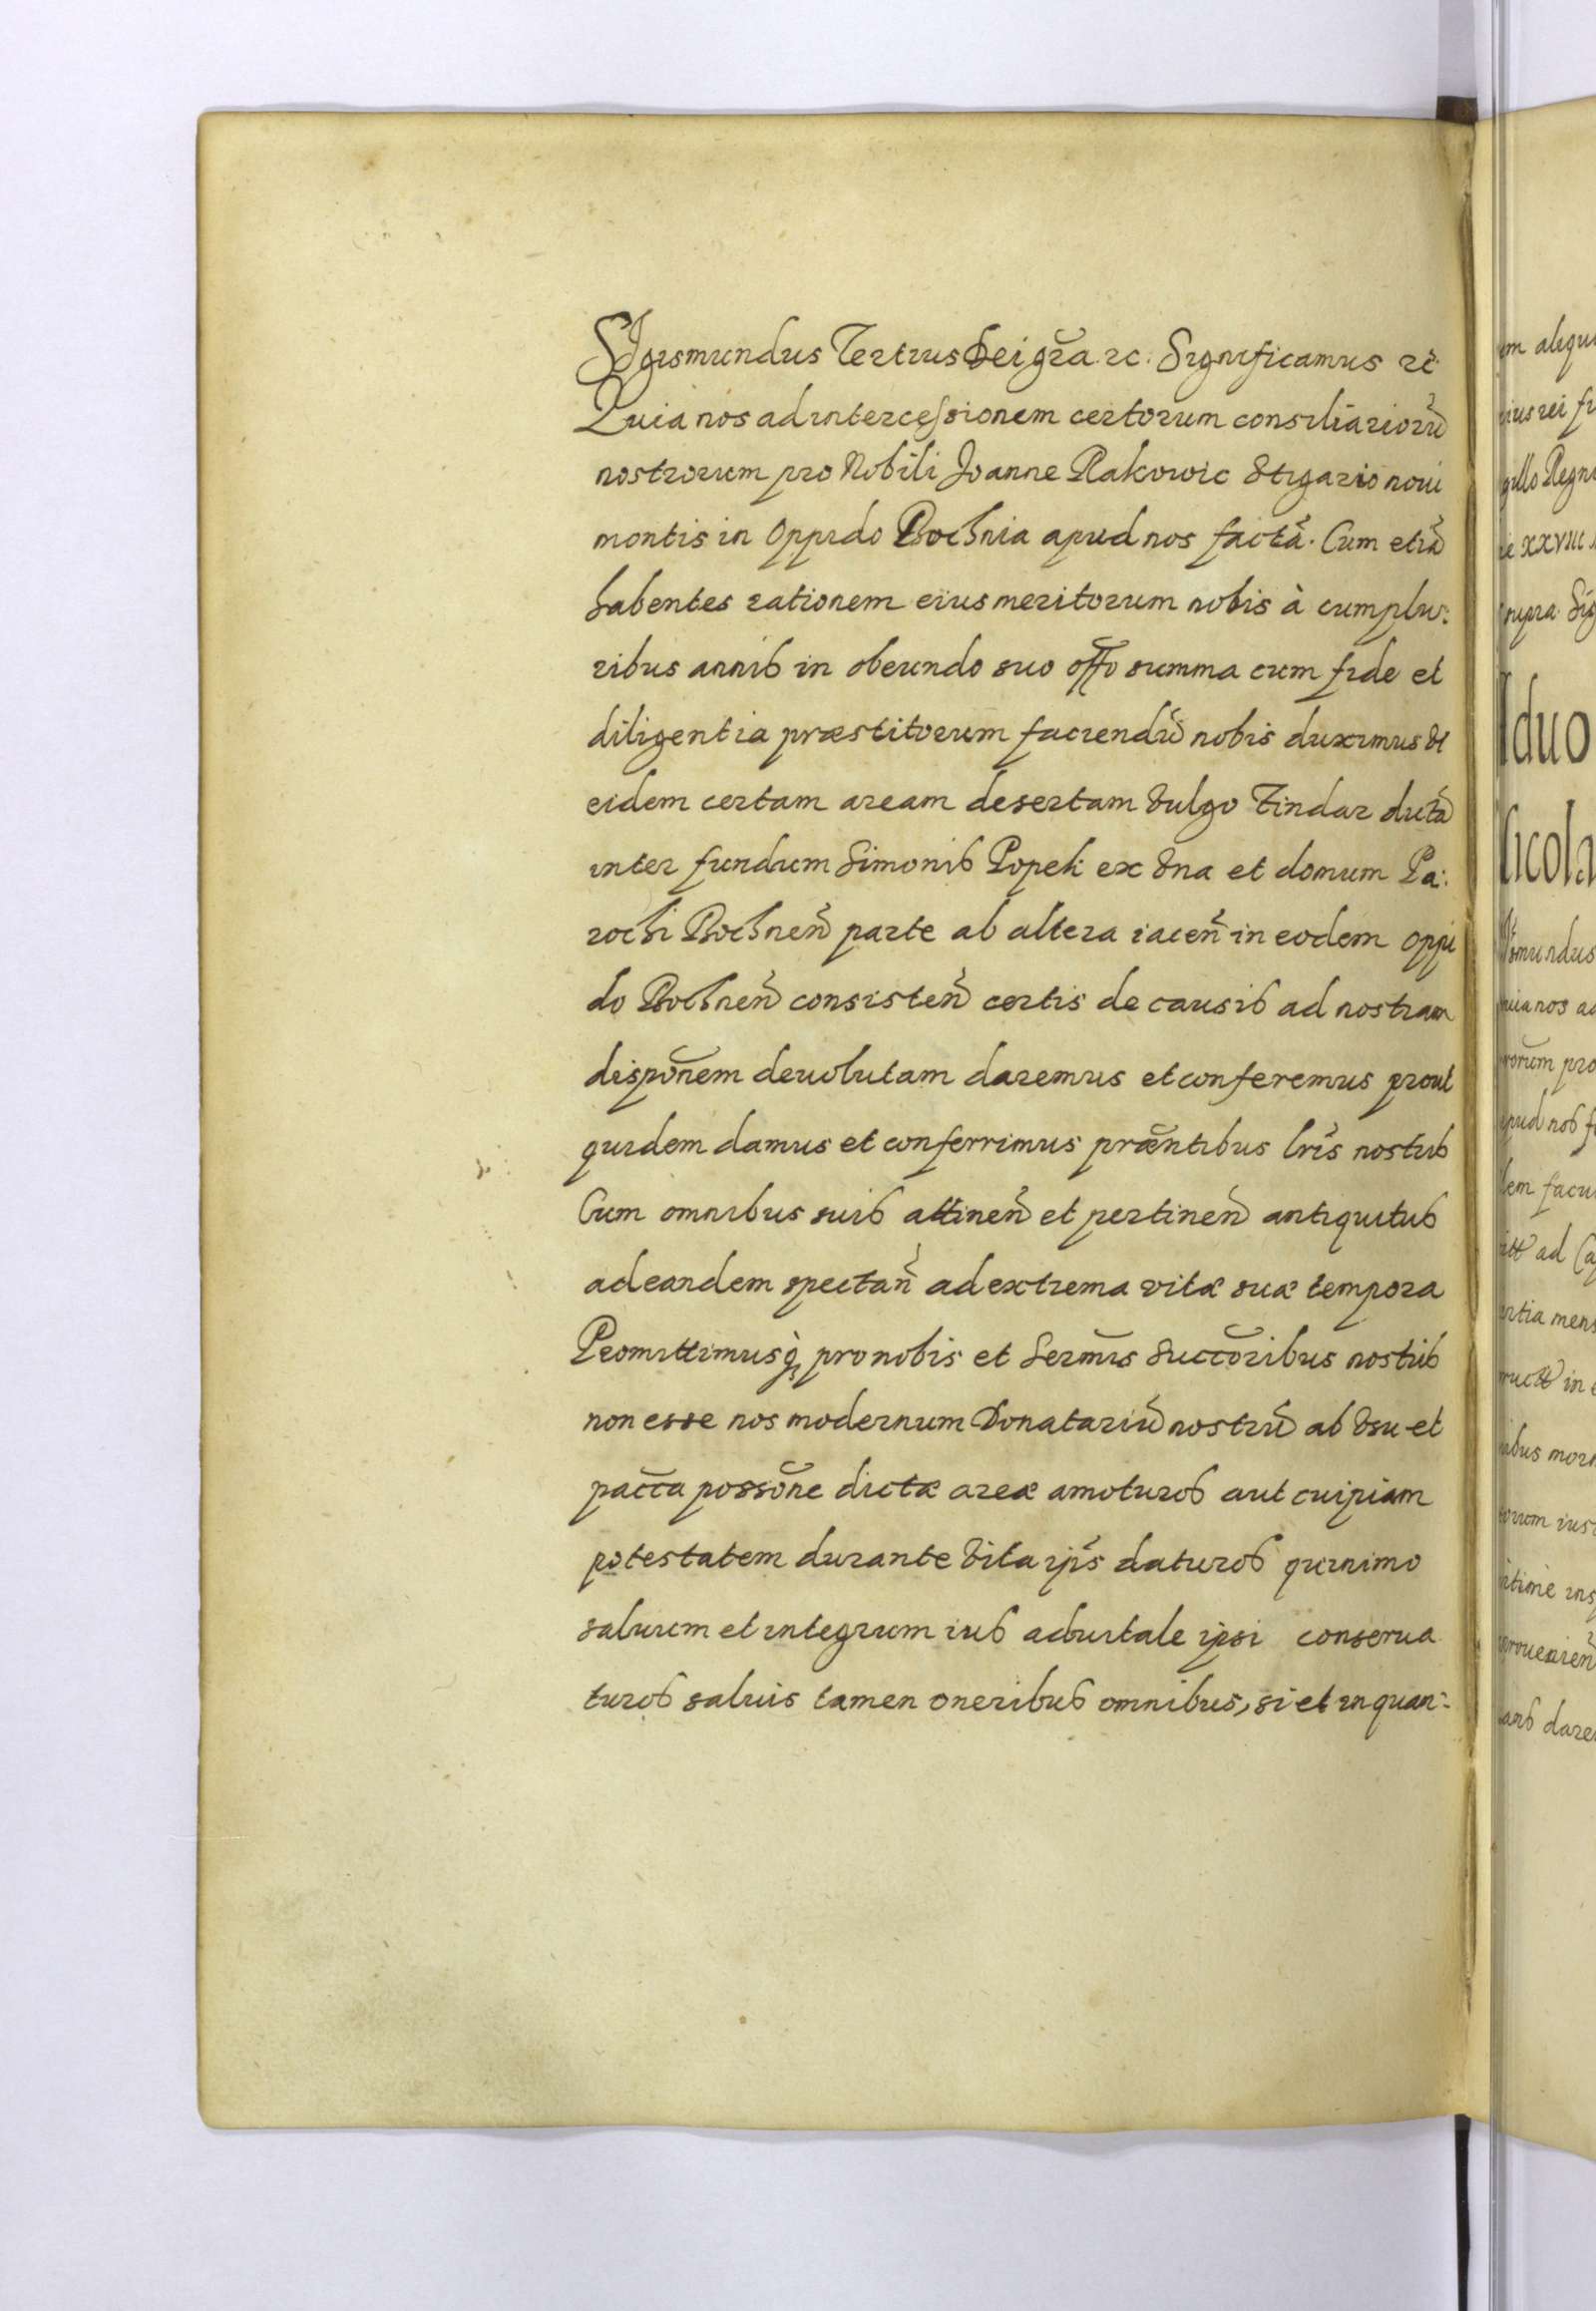 Sigismundus Tertius Dei gr̃a. ec: Significamus ec̃
Quia nos ad intercessionem certorum consiliariorũ
nostrorum pro Nobili Joanne Rakowic Stigario noui
montis in Oppido Bochnia apud nos factã. Cum etiã
habentes rationem eius meritorum nobis à cumplu:
ribus annis in obeundo suo offõ summa cum fide et
diligentia præstitorum faciendũ nobis duximus vt
eidem certam aream desertam vulgo Tindar dictã
inter fundum Simonis Popek ex vna et domum Pa:
rochi Bochneñ parte ab altera iaceñ in eodem oppi
do Bochneñ consisteñ certis de causis ad nostram
disponẽm deuolutam daremus et conferemus prout
quidem damus et conferrimus præñtibus lris̃ nostris
Cum omnibus suis attineñ et pertineñ antiquitus
ad eandem spectañ ad extrema vitæ suæ tempora
Promittimusq̃ pro nobis et Serm̃is Succõribus nostris
non esse nos modernum Donatariũ nostrũ ab vsu et
pacc̃a possõne dictæ areæ amoturos aut cuipiam
potestatem durante vita ips̃ daturos quinimo
saluum et integrum ius aduitale ipsi conserua
turos saluis tamen oneribus omnibus, si et inquan:
em aliqu
eius rei fi
gillo Regni
ie XXVIII
supra. Sig
duo
icola
smundus
uia nos ad
rorum pro
apud nos f
lem facu
itt ad Ca
ertia mens
ruct in e
ibus mor
orum ius
itime ins
proueñ
anis dare